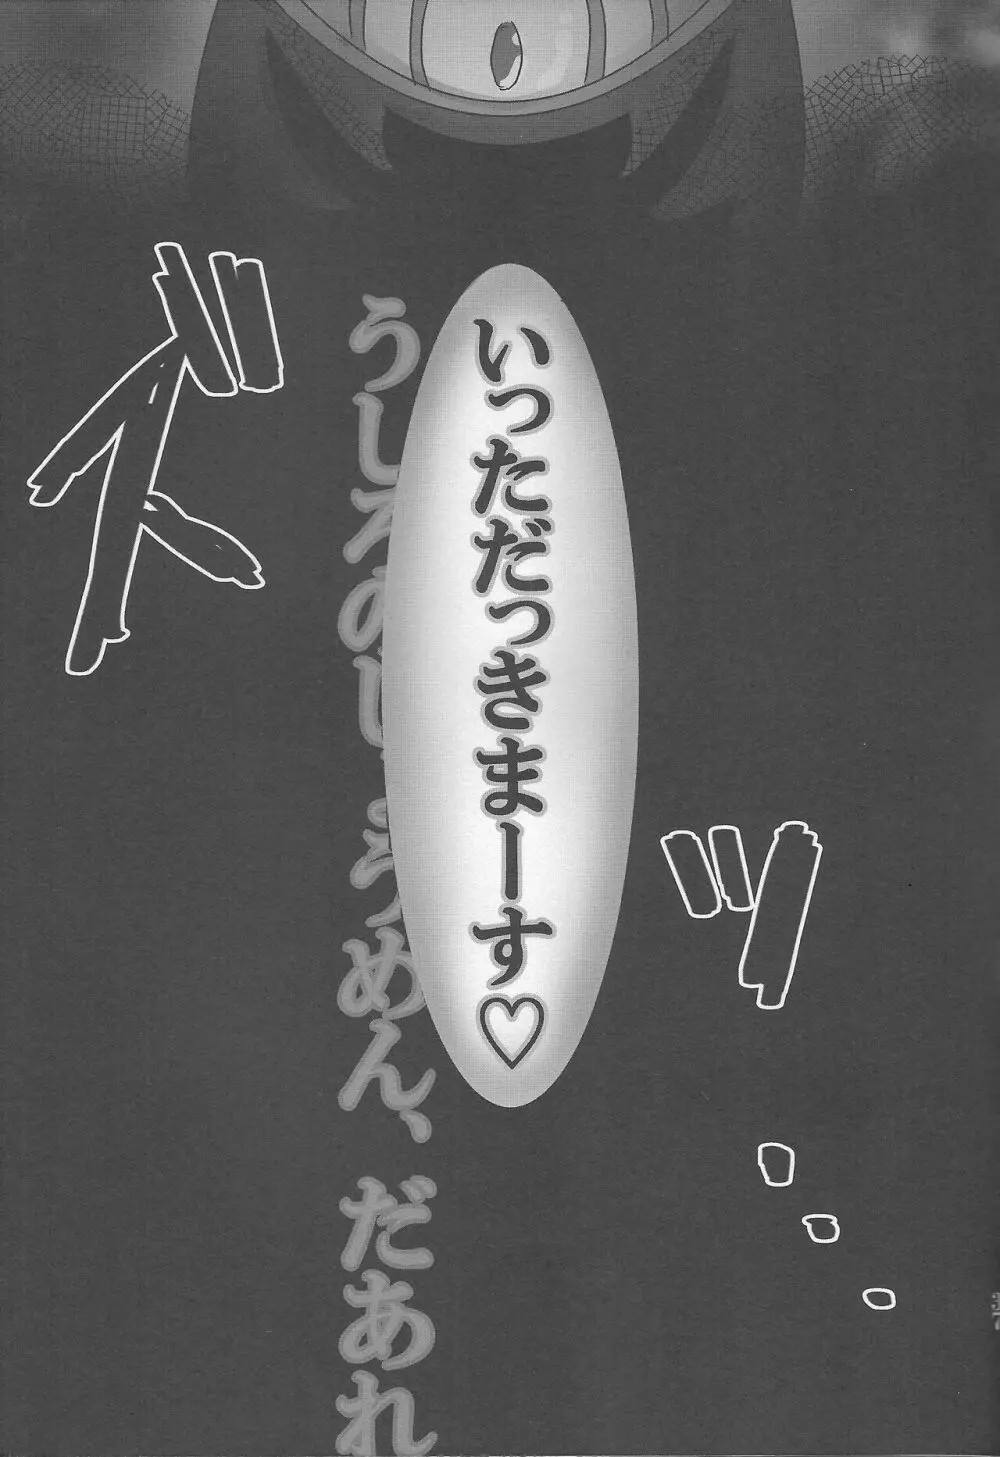 いっただっきまーす♡
うしろのしょうめん、だあれ
ズッ